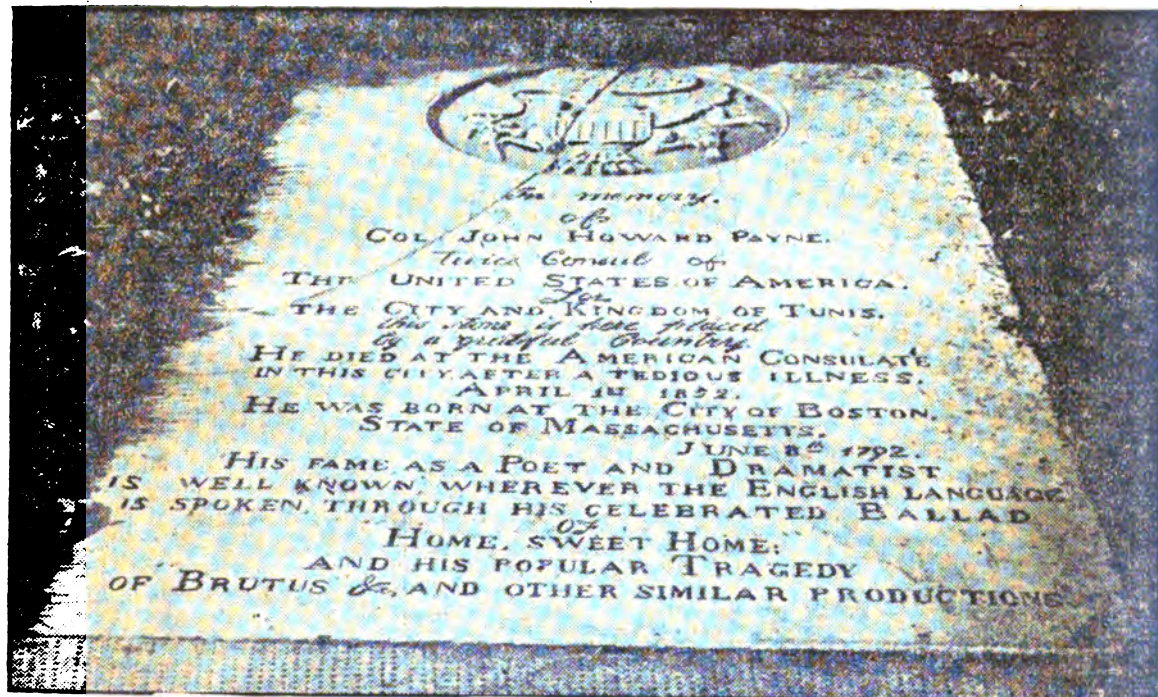 In memory.
of
COL. JOHN HOWARD PAYNE.
Twice Consul of
THE UNITED STATES OF AMERICA.
for
THE CITY AND KINGDOM OF TUNIS.
this stone is here placed
by a grateful Country.
HE DIED AT THE AMERICAN CONSULATE
IN THIS CITY AFTER A TEDIOUS ILLNESS.
APRIL 1st 1852.
HE WAS BORN AT THE CITY OF BOSTON.
STATE OF MASSACHUSETTS.
JUNE 8th 1792.
HIS FAME AS A POET AND DRAMATIST
IS WELL KNOWN WHEREVER THE ENGLISH LANGUAGE
IS SPOKEN, THROUGH HIS CELEBRATED BALLAD
OF
"HOME, SWEET HOME;"
AND HIS POPULAR TRAGEDY
OF "BRUTUS" &c, AND OTHER SIMILAR PRODUCTIONS